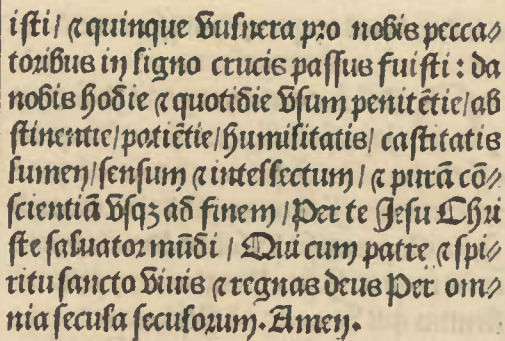 iſti / ⁊ quinque Vulnera pro nobis pecca⸗
toribus in ſigno crucis paſſus fuiſti : da
nobis hodie ⁊ quotidie Vſum penitētie / ab
ſtinentie / patiētie / humilitatis / caſtitatis
lumen / ſenſum ⁊ intellectum / ⁊ purā cō⸗
ſcientiā Vſqꝫ ad finem / Per te Jeſu Chri
ſte ſaluator mūdi / Qui cum patre ⁊ ſpi⸗
ritu ſancto Viuis ⁊ regnas deus Per om⸗
nia ſecula ſeculorum. Amen.